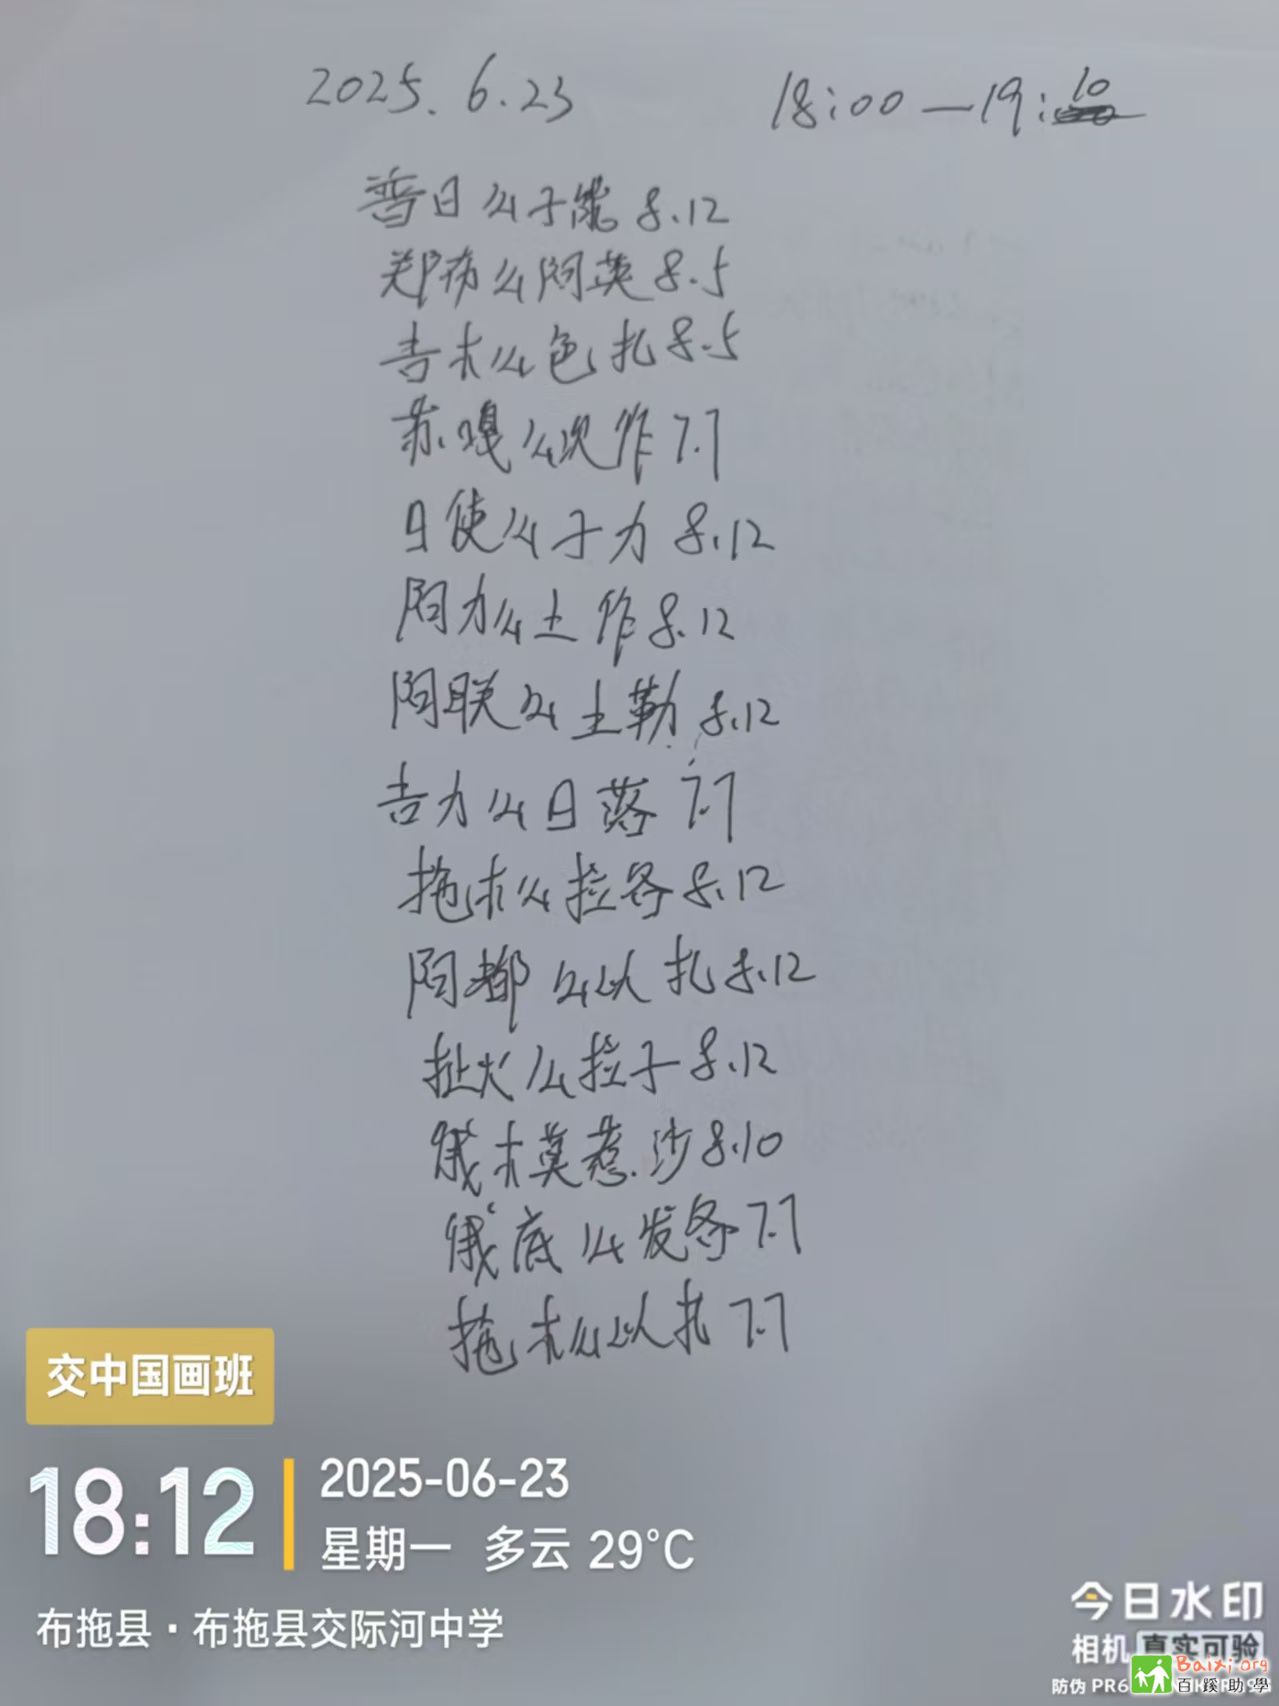 2025.6.23 18:00—19:10
普日么子能 8.12
郑布么阿英 8.5
吉木么色扎 8.5
苏嘎么次作 7.7
日使么子力 8.12
阿力么土作 8.12
阿联么土勒 8.12
吉力么日落 7.7
拖木么拉各 8.12
阿都么以扎 8.12
扯火么拉子 8.12
俄木莫惹沙 8.10
俄底么发各 7.7
拖木么以扎 7.7
交中国画班
18:12
2025-06-23
星期一 多云 29°C
布拖县·布拖县交际河中学
今日水印
相机 真实可验
防伪
Baixi.org
百蹊助學